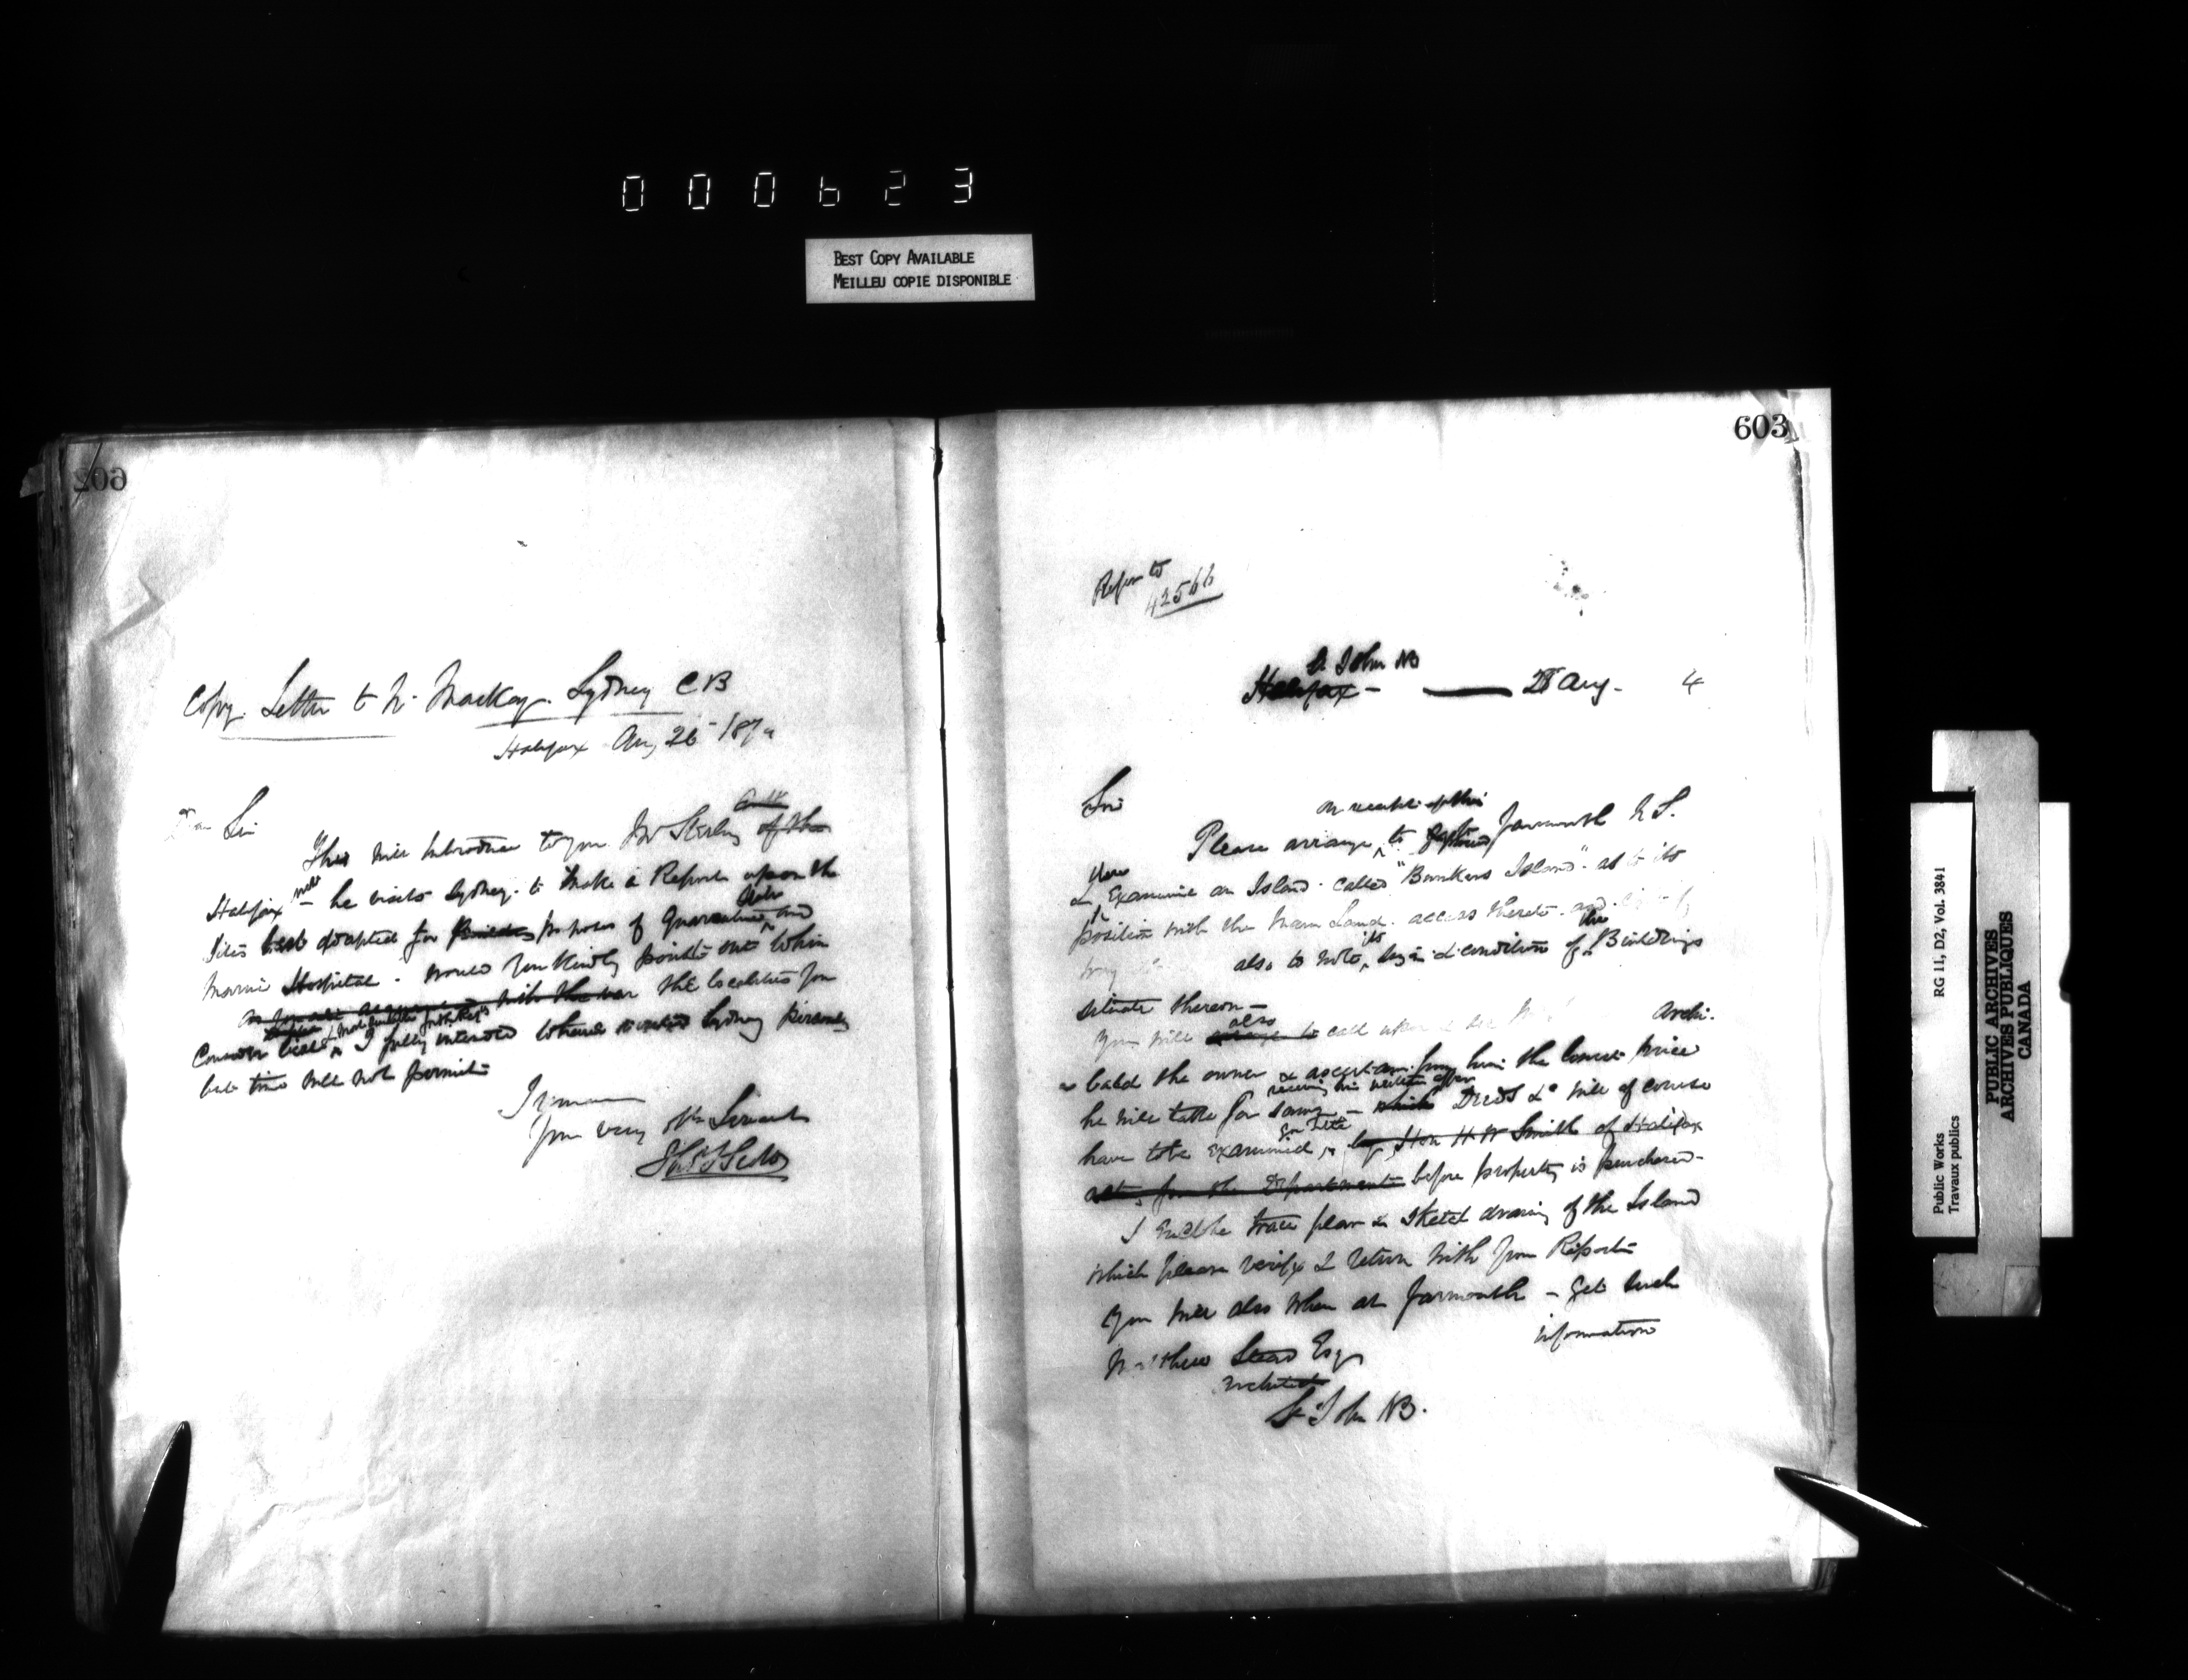 000623
BEST COPY AVAILABLE
MEILLEU COPIE DISPONIBLE
602
Copy. Letter to Mackay. Sydney CB
Halifax Aug 26 187
Sir
This will introduce to you Mr Stirling of the
Halifax he visits Sydney to make a Report upon the
sites best adapted for purposes of Quarantine and
Marine Hospital. would you kindly point out to him
the localities you
consider best I fully intended to have visited Sydney personally
but time will not permit
I remain
Your very Obt Servant
603
Refer to
42566
St John NB
Halifax — 28 Aug. 4
Sir
on receipt of this
Please arrange to Yarmouth N.S.
& Examine an Island called "Bunkers Island" as to its
position with the Main Land. access thereto and
also to note its size & condition of the Buildings
situate thereon —
You will also call upon Archi-
bald the owner & ascertain from him the lowest price
receiving his written offer
he will take for same — which Deeds &c will of course
have to be examined, by Hon H W Smith of Halifax
for the Department before property is purchased —
I enclose trace plan & sketch drawing of the Island
which please verify & return with your Report
You will also when at Yarmouth — get such
information
Matthew Stead Esqr
Architect
St John NB.
Public Works
Travaux publics
RG 11, D2, Vol. 3841
PUBLIC ARCHIVES
ARCHIVES PUBLIQUES
CANADA